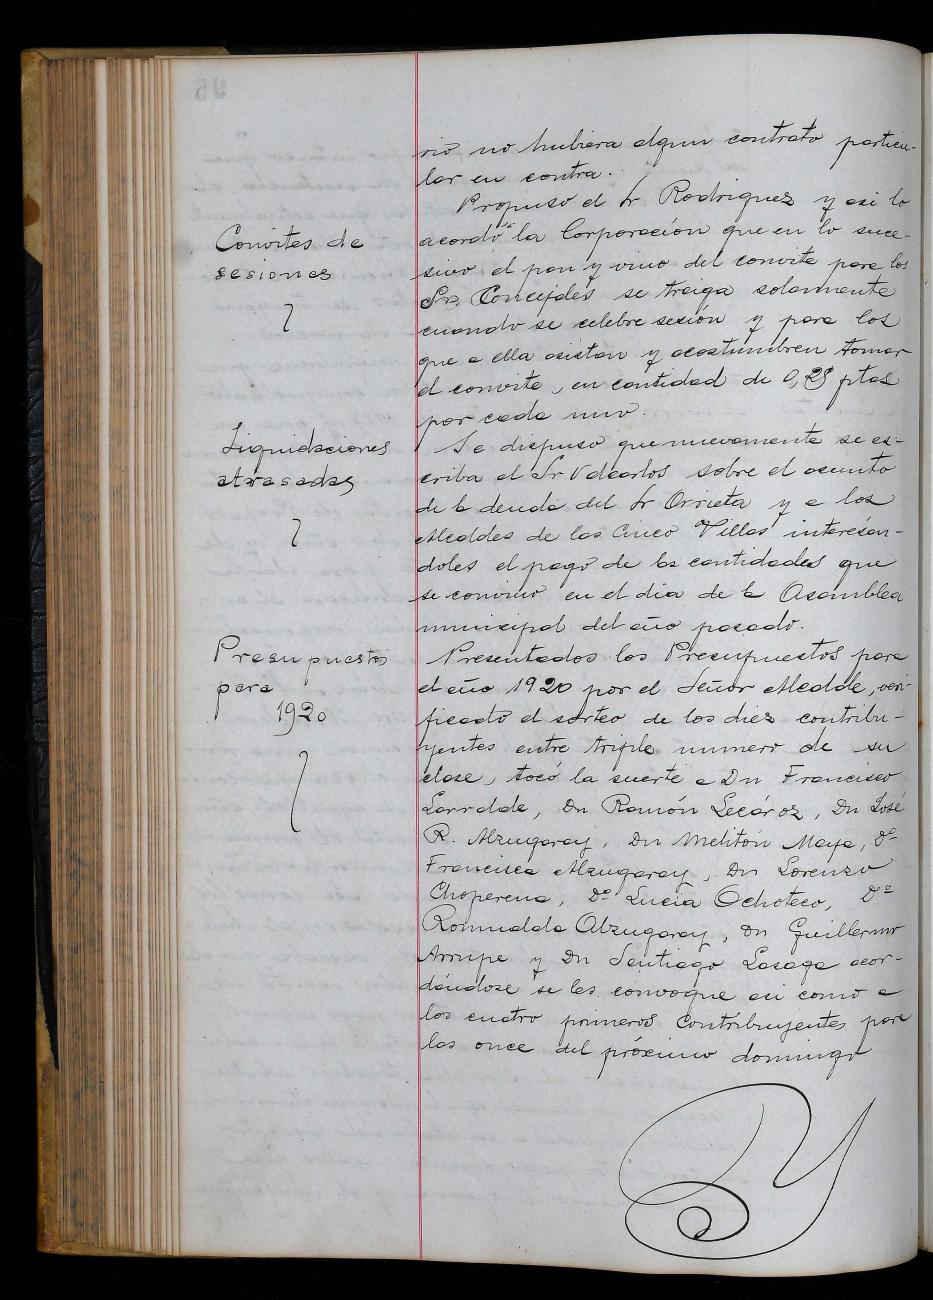 rio no hubiera algun contrato particu-
lar en contra.
Convites de
sesiones
Propuso el Sr Rodriguez y asi lo
acordó la Corporación que en lo suce-
sivo el pan y vino del convite para los
Srs Concejales se traiga solamente
cuando se celebre sesión y para los
que a ella asistan y acostumbren tomar
el convite, en cantidad de 0,25 ptas
por cada uno.
Liquidaciones
atrasadas
Se dispuso que nuevamente se es-
criba al Sr Valcarlos sobre el asunto
de la deuda del Sr Orrieta y a los
Alcaldes de las Cinco Villas interesan-
doles el pago de las cantidades que
se convino en el dia de la Asamblea
municipal del año pasado.
Presupuestos
para
1920
Presentados los Presupuestos para
el año 1920 por el Señor Alcalde, veri-
ficado el sorteo de los diez contribu-
yentes entre triple numero de su
clase, tocó la suerte a Dn Francisco
Larralde, Dn Ramón Lecároz, Dn José
R. Alzugaray, Dn Melitón Maya, Dª
Francisca Alzugaray, Dn Lorenzo
Choperena, Dª Lucia Ochoteco, Dª
Romualda Alzugaray, Dn Guillermo
Arrupe y Dn Santiago Lasaga acor-
dándose se les convoque asi como a
los cuatro primeros contribuyentes para
las once del próximo domingo